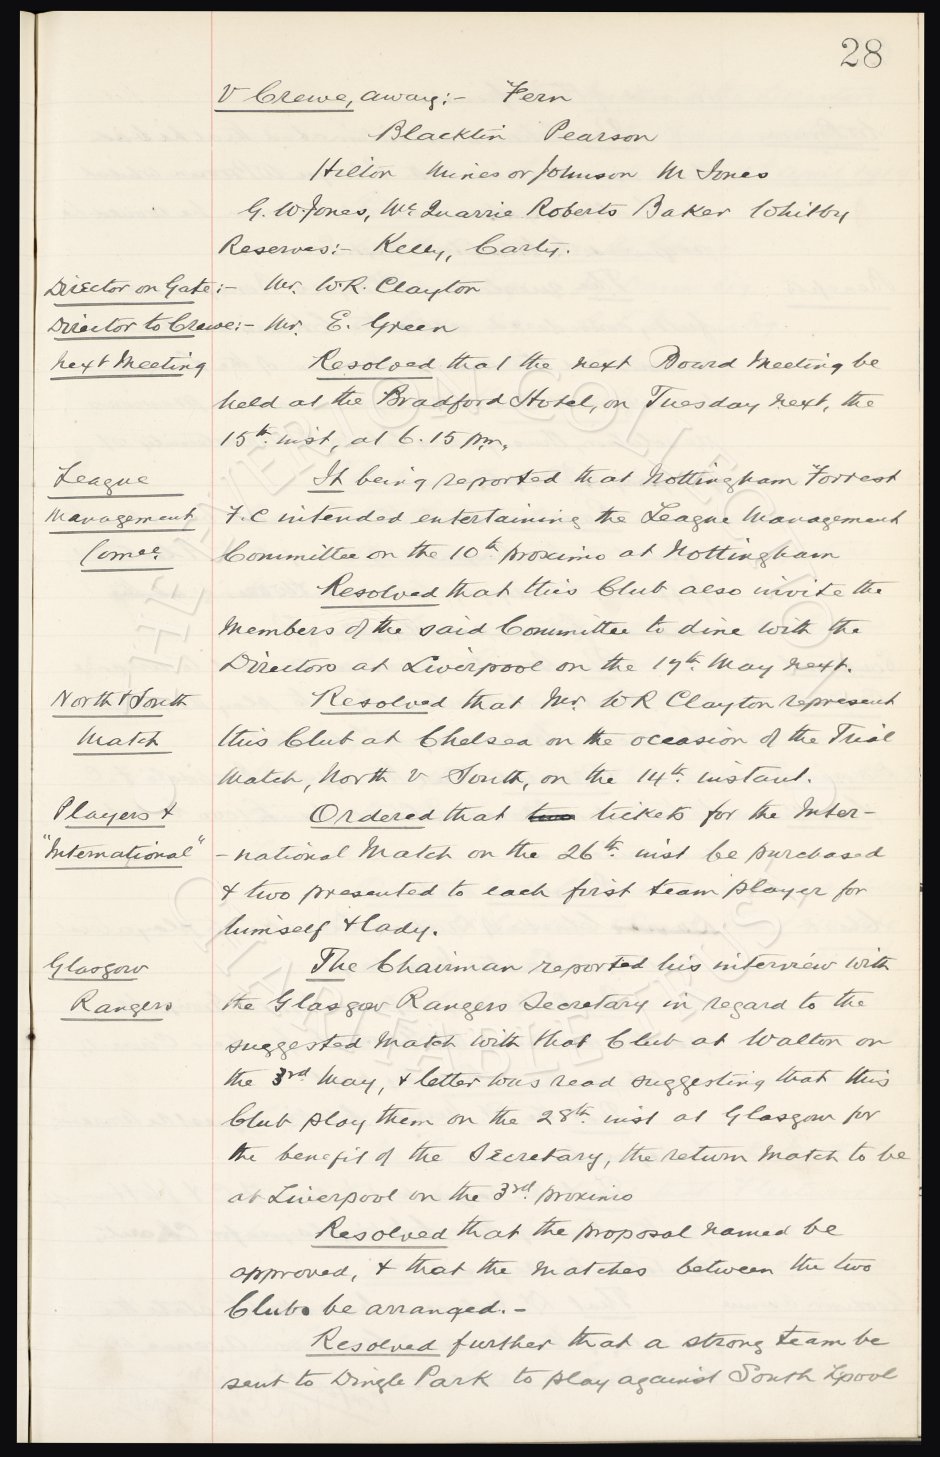 28
V Crewe, away:- Fern
Blacklin Pearson
Hilton Mines or Johnson M Jones
G. W. Jones, McQuarrie Roberts Baker Whitby
Reserves:- Kelly, Carty.
Director on Gate:- Mr. W.R. Clayton
Director to Crewe:- Mr. E. Green
Next Meeting Resolved that the next Board Meeting be
held at the Bradford Hotel, on Tuesday next, the
15th inst, at 6.15 pm.
League It being reported that Nottingham Forrest
Management F.C intended entertaining the League Management
Comee. Committee on the 10th proximo at Nottingham
Resolved that this Club also invite the
Members of the said Committee to dine with the
Directors at Liverpool on the 17th May next.
North & South Resolved that Mr. WR Clayton represent
Match this Club at Chelsea on the occasion of the Trial
Match, North v South, on the 14th instant.
Players & Ordered that two tickets for the Inter-
"International" -national Match on the 26th inst be purchased
& two presented to each first team player for
himself & lady.
Glasgow The Chairman reported his interview with
Rangers the Glasgow Rangers Secretary in regard to the
suggested Match with that Club at Walton on
the 3rd May, & letter was read suggesting that this
Club play them on the 28th inst at Glasgow for
the benefit of the Secretary, the return Match to be
at Liverpool on the 3rd proximo
Resolved that the proposal named be
approved, & that the Matches between the two
Clubs be arranged.-
Resolved further that a strong team be
sent to Dingle Park to play against South Lpool